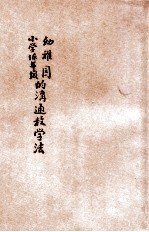 幼稚园
小学低年级
的沟通教学法